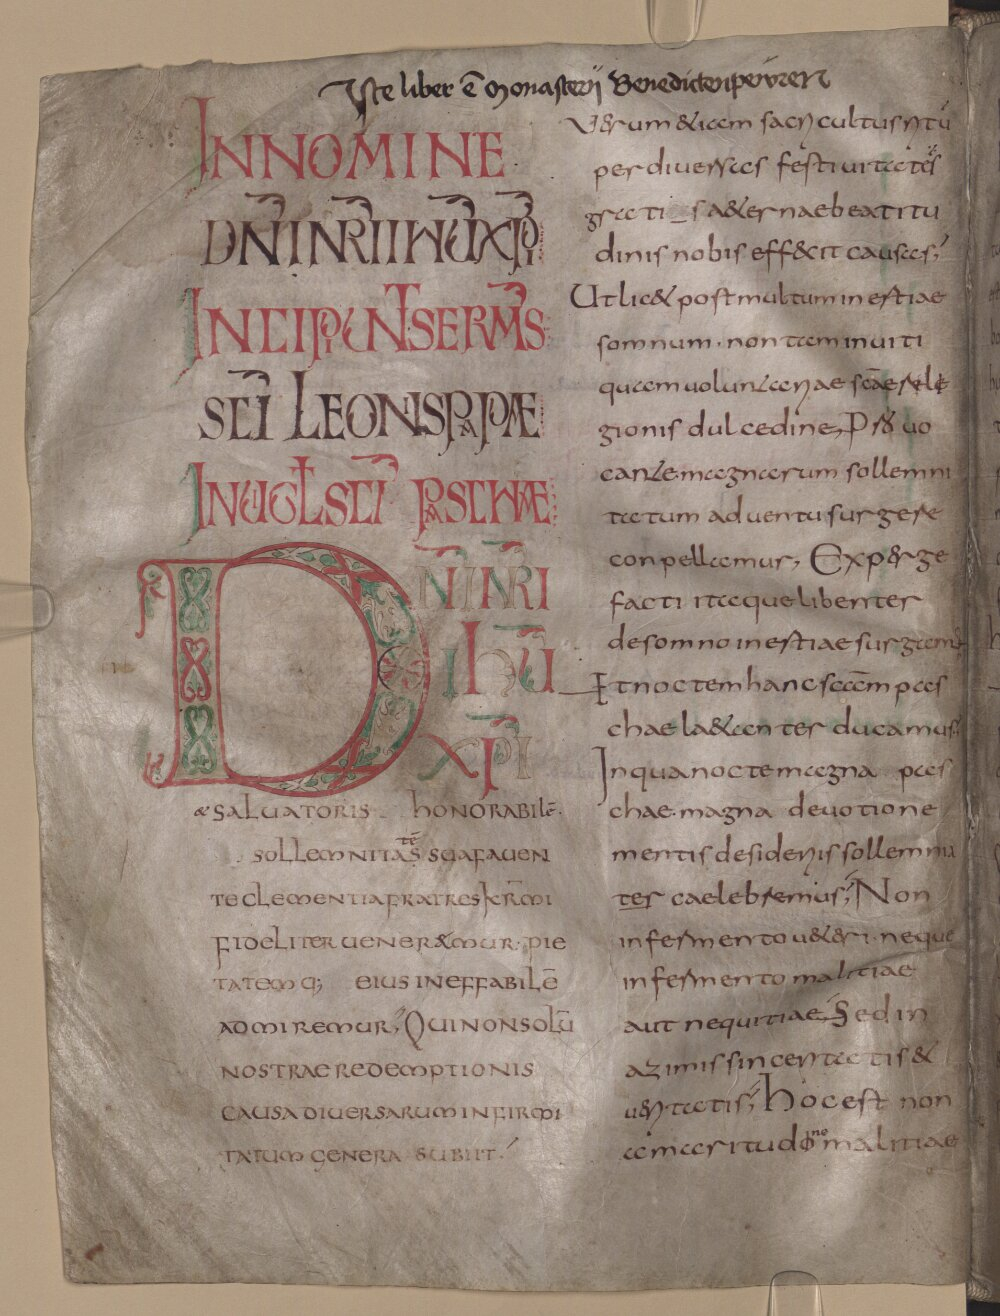 Iste liber ē Monasterij Benedictenpewren
IN NOMINE
DN̄I NR̄I IHŪ XP̄I
INCIPIUNT SERM̄S
SC̄I LEONIS PAPAE
IN UIGL̄ SC̄I PASCHAE
DN̄I NR̄I
IHŪ
XP̄I
& SALUATORIS HONORABILĒ
SOLLEMNITATĒS SUA FAUEN
TE CLEMENTIA FRATRES KR̄MI
FIDELITER UENEREMUR. PIE
TATEMQ; EIUS INEFFABILĒ
ADMIREMUR; QUI NON SOLŪ
NOSTRAE REDEMPTIONIS
CAUSA DIUERSARUM INFIRMI
TATUM GENERA SUBIIT;
Uerum & iam sacri cultus ritū
per diuersas festiuitates
grati sa& ernae beatitu
dinis nobis effecit causas;
Ut lic& post multum inestiae
somnum. non tam inuiti
quam uoluntariae sc̄ae reli
gionis dulcedine, Pro uo
cante magnarum sollemni
tatum aduentu surgere
conpellamur, Experge
facti itaque libenter
de somno inestiae surgamus
Et noctem hanc sacām pas
chae la&anter ducamus;
In qua nocte magna pas
chae magna deuotione
mentis desideriis sollemni
ter caelebremus; Non
in fermento u&eri. neque
in fermento malitiae
aut nequitiae, Sed in
azimis sinceritatis &
ueritatis; hoc est non
amaritudine malitiae